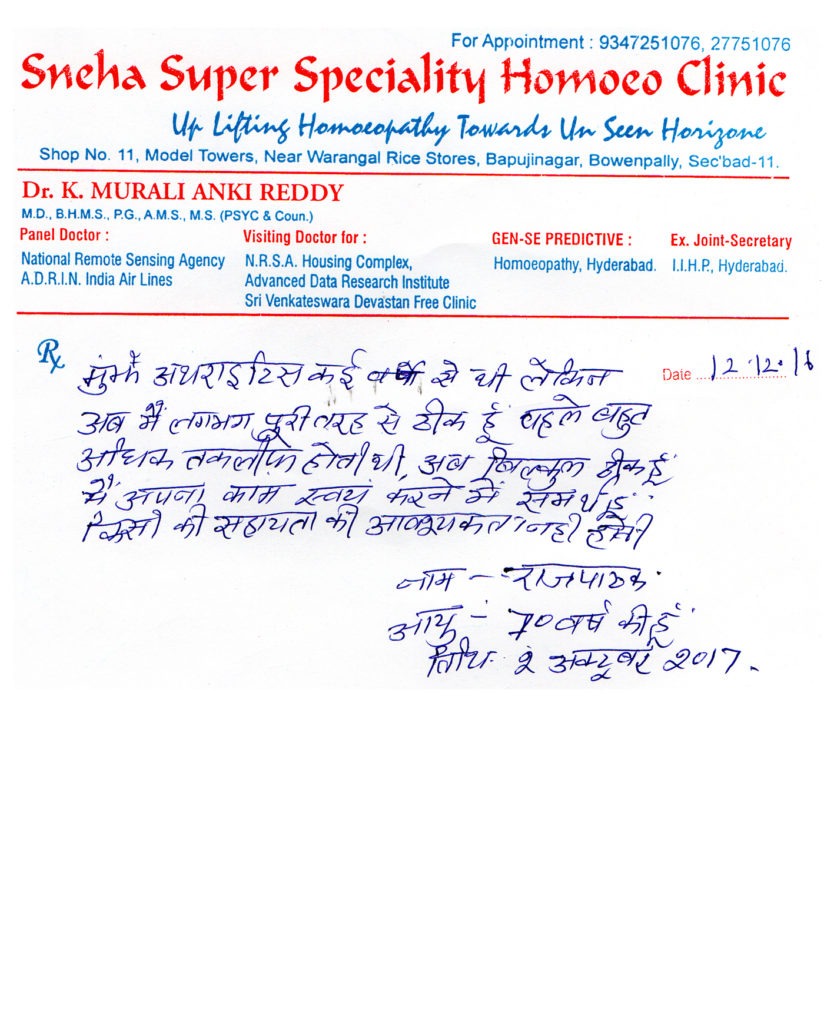 For Appointment : 9347251076, 27751076
Sneha Super Speciality Homoeo Clinic
Up Lifting Homoeopathy Towards Un Seen Horizone
Shop No. 11, Model Towers, Near Warangal Rice Stores, Bapujinagar, Bowenpally, Sec'bad-11.
Dr. K. MURALI ANKI REDDY
M.D., B.H.M.S., P.G., A.M.S., M.S. (PSYC & Coun.)
Panel Doctor : Visiting Doctor for : GEN-SE PREDICTIVE : Ex. Joint-Secretary
National Remote Sensing Agency N.R.S.A. Housing Complex, Homoeopathy, Hyderabad. I.I.H.P., Hyderabad.
A.D.R.I.N. India Air Lines Advanced Data Research Institute
Sri Venkateswara Devastan Free Clinic
Rx Date 12.12.16
मुझे अथराइटिस कई वर्षो से थी लेकिन
अब मैं लगभग पुरी तरह से ठीक हूँ पहले बहुत
अधिक तकलीफ़ होती थी, अब बिल्कुल ठीक हूँ
मैं अपना काम स्वयं करने में समर्थ हूँ
किसी की सहायता की आवश्यकता नही
नाम - राजपाठक.
आयु - 70 वर्ष की हूँ
तिथि 2 अक्टूबर 2017.